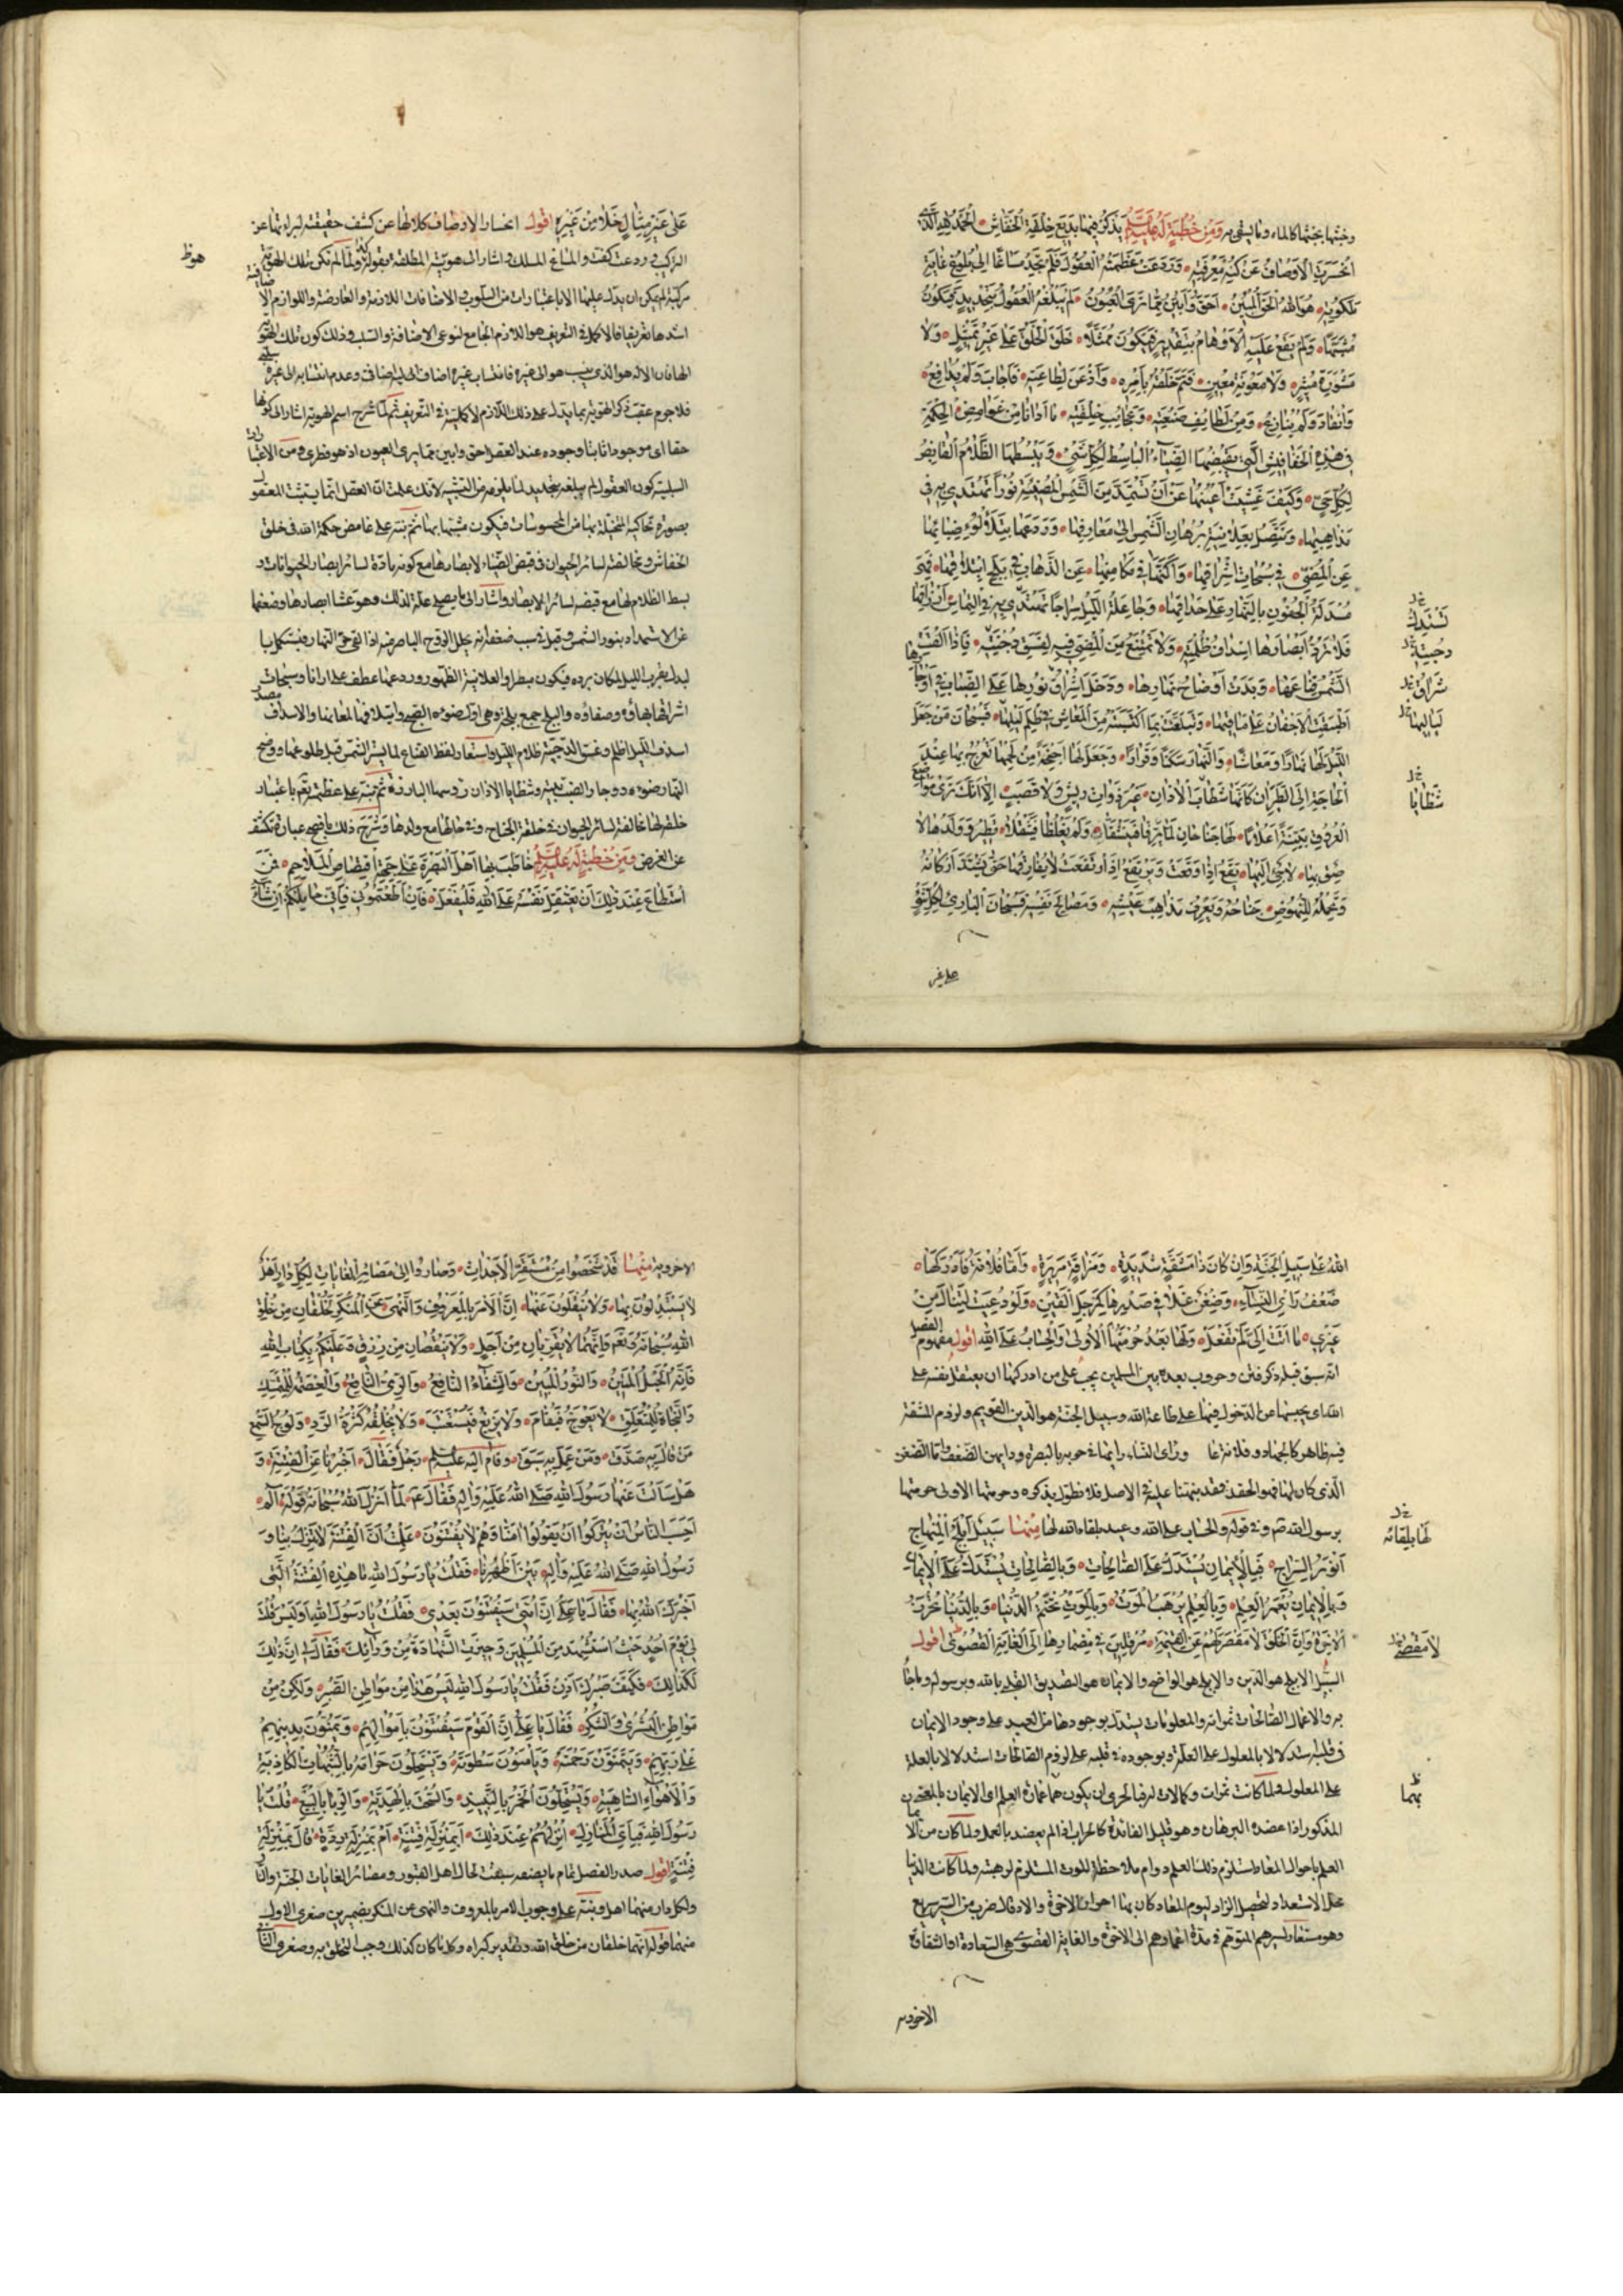 وخبثها بخبثها كالماء وما يسقى به ومن خطبة له عليه السلام يذكر فيها بديع خلقة الخفاش الحمد لله الذي
انحسرت الاوصاف عن كنه معرفته وردعت عظمته العقول فلم تجد مساغا الى بلوغ غاية
ملكوته هو الله الحق المبين احق وابين مما ترى العيون لم تبلغه العقول بتحديد فيكون
مشبها ولم تقع عليه الاوهام بتقدير فيكون ممثلا خلق الخلق على غير تمثيل ولا
مشورة مشير ولا معونة معين فتم خلقه بامره واذعن لطاعته فاجاب ولم يدافع
وانقاد ولم ينازع ومن لطايف صنعته وعجائب خلقته ما ارانا من غوامض الحكمة
في هذه الخفافيش التي يقبضها الضياء الباسط لكل شيء ويبسطها الظلام القابض
لكل حي وكيف عشيت اعينها عن ان تستمد من الشمس المضيئة نورا تهتدي به في
مذاهبها وتتصل بعلانية برهان الشمس الى معارفها وردعها بتلألؤ ضيائها
عن المضي في سبحات اشراقها واكنها في مكامنها عن الذهاب في بلج ائتلاقها فهي
مسدلة الجفون بالنهار على حداقها وجاعلة الليل سراجا تستدل به في التماس ارزاقها
فلا يرد ابصارها اسداف ظلمته ولا تمتنع من المضي فيه لغسق دجنته فاذا القت
الشمس قناعها وبدت اوضاح نهارها ودخل اشراق نورها على الضباب في وجارها
اطبقت الاجفان على مآقيها وتبلغت بما اكتسبته من المعاش في ظلم لياليها فسبحان من جعل
الليل لها نهارا ومعاشا والنهار سكنا وقرارا وجعل لها اجنحة من لحمها تعرج بها عند
الحاجة الى الطيران كانها شظايا الآذان غير ذوات ريش ولا قصب الا انك ترى مواضع
العروق بينة اعلاما لها جناحان لما يرقا فينشقا ولم يغلظا فيثقلا تطير وولدها لا
صق بها لاجئ اليها يقع اذا وقعت ويرتفع اذا ارتفعت لا يفارقها حتى تشتد اركانه
ويحمله للنهوض جناحه ويعرف مذاهب عيشه ومصالح نفسه فسبحان البارئ لكل شيء
على غير
تستدل
دجنته
شراق
لياليها
شظايا
على غير مثال خلا من غيره اقول انحسار الاوصاف كلالها عن كشف حقيقته لبراءتها عن
التركيب وردعت كفت والمساغ المسلك واشار الى هويته المطلقة بقوله هو ولما لم تكن تلك الهوية
مركبة لم يمكن ان يدل عليها الا باعتبارات من السلوب والاضافات اللازمة والعارضة واللوازم الاضافية
اشدها تعريفا فالاكمل في التعريف هو اللازم الجامع لنوعي الاضافة والسلب وذلك كون تلك الهوية
الها فان الاله هو الذي ينسب هو الى غيره فانتساب غيره اضافي له وعدم انتسابه الى غيره سلبي
فلا جرم عقب ذكر الهوية بما يدل على ذلك اللازم لاكمليته في التعريف ثم لما شرح اسم الهوية اشار الى كونها
حقا اي موجودا ثابتا وجوده عند العقل احق وابين مما يرى العيون اذ هو فطري ومن الاعتبارات
السلبية كون العقول لم يبلغه بتحديد لما يلزمه من التشبيه لانك علمت ان العقل انما يثبت المعقول
بصورة تحاكيه المخيلة بها من المحسوسات فيكون مشبها بها ثم نبه على غامض حكمة الله في خلق
الخفاش ومخالفته لسائر الحيوان في قبض الضياء لابصارها مع كونه مادة لسائر ابصار الحيوانات و
بسط الظلام لها مع قبضه لسائر الابصار واشار الى ما يصلح علة لذلك وهو عشا ابصارها وضعفها
عن الاستمداد بنور الشمس وقيل في سبب ضعفه انه تحلل الروح الباصر منه اذا لقي حر النهار فيستكمل بدل
اشراقها بهاؤه وصفاؤه والبلج جمع بلجة وهي اول ضوء الصبح وائتلاقها لمعانها والاسداف
اسدف الليل اظلم وغسق الدجنة ظلام الليل واستعار لفظ القناع لما يستر الشمس قبل طلوعها ووضح
النهار ضوءه ووجار الضب بيته وشظايا الآذان رؤسها البارزة ثم نبه على عظمته تعالى باعتبار
خلقه لها مخالفة لسائر الحيوان في خلقة الجناح وفي حالها مع ولدها وشرح ذلك بافصح عبارة تكشف
عن الغرض ومن خطبة له عليه السلام خاطب بها اهل البصرة على جهة اقتصاص الملاحم فمن
استطاع عند ذلك ان يعتقل نفسه على الله فليفعل فان اطعتموني فاني حاملكم ان شاء
هوظ
الله على سبيل الجنة وان كان ذا مشقة شديدة ومذاقة مريرة واما فلانة فادركها
ضعف راي النساء وضغن غلا في صدرها كمرجل القين ولو دعيت لتنال من
غيري ما اتت الي لم تفعل ولها بعد حرمتها الاولى والحساب على الله اقول مفهوم الفصل
انه سبق قبله ذكر فتن وحروب بعده بين المسلمين يجب على من ادركها ان يعتقل نفسه على
الله اي يحبسها عن الدخول فيها على طاعة الله وسبيل الجنة هو الدين القويم ولزوم المشقة
فيه ظاهر كالجهاد وفلانة وراي النساء رايها في حربه بالبصرة ورايهن الضعف واما الضغن
الذي كان لها فهو الحقد فقد نبهنا عليه في الاصل فلا نطول بذكره وحرمتها الاولى حرمتها
برسول الله ص وفي قوله والحساب على الله وعيد بلقاء الله لها منها سبيل ابلج المنهاج
انور السراج فبالايمان يستدل على الصالحات وبالصالحات يستدل على الايمان
وبالايمان يعمر العلم وبالعلم يرهب الموت وبالموت تختم الدنيا وبالدنيا تحرز
الآخرة وان الخلق لا مقصر لهم عن القيامة مرقلين في مضمارها الى الغاية القصوى اقول
السبيل الابلج هو الدين والابلج هو الواضح والايمان هو التصديق القلبي بالله وبرسوله وما جاء
به والاعمال الصالحات ثمراته والمعلومات يستدل بوجودها من العبد على وجود الايمان
في قلبه استدلالا بالمعلول على العلة وبوجوده في قلبه على لزوم الصالحات استدلالا بالعلة
على المعلول ولما كانت ثمرات وكمالات له فبالحري ان يكون بها عمارة العلم اي الايمان بالمعنى
المذكور اذا عضده البرهان وهو قليل الفائدة كالخراب اذا لم يعضد بالعمل ولما كان من
العلم باحوال المعاد استلزم ذلك العلم دوام ملاحظة الموت المستلزم لرهبته ولما كانت الدنيا
محل الاستعداد لتحصيل الزاد ليوم المعاد كان بها احراز الآخرة والارقال ضرب من السير سريع
وهو مستعار لسيرهم المتوهم في مدة اعمارهم الى الآخرة والغاية القصوى هي السعادة او الشقاوة
الاخروية
لها بلقائه
لا مقصر
بهما
الاخروية منها قد شخصوا من مستقر الاجداث وصاروا الى مصائر الغايات لكل دار اهلها
لا يستبدلون بها ولا ينقلون عنها ان الامر بالمعروف والنهي عن المنكر لخلقان من خلق
الله سبحانه وتع وانهما لا يقربان من اجل ولا ينقصان من رزق وعليكم بكتاب الله
فانه الحبل المتين والنور المبين والشفاء النافع والري الناقع والعصمة للمتمسك
والنجاة للمتعلق لا يعوج فيقام ولا يزيغ فيستعتب ولا يخلقه كثرة الرد وولوج السمع
من قال به صدق ومن عمل به سبق وقام اليه عليه السلام رجل فقال اخبرنا عن الفتنة و
هل سألت عنها رسول الله صلى الله عليه واله فقال ع لما انزل الله سبحانه قوله الم
احسب الناس ان يتركوا ان يقولوا امنا وهم لا يفتنون علمت ان الفتنة لا تنزل بنا و
رسول الله صلى الله عليه واله بين اظهرنا فقلت يا رسول الله ما هذه الفتنة التي
اخبرك الله بها فقال يا علي ان امتي سيفتنون بعدي فقلت يا رسول الله اوليس قلت
لي يوم احد حيث استشهد من المسلمين وحيزت الشهادة من ورائك فقال لي ان ذلك
لكذلك فكيف صبرك اذن فقلت يا رسول الله ليس هذا من مواطن الصبر ولكن من
مواطن البشرى والشكر فقال يا علي ان القوم سيفتنون باموالهم ويمنون بدينهم
على ربهم ويتمنون رحمته ويامنون سطوته ويستحلون حرامه بالشبهات الكاذبة
والاهواء الساهية ويستحلون الخمر بالنبيذ والسحت بالهدية والربا بالبيع قلت يا
رسول الله فباي المنازل انزلهم عند ذلك ابمنزلة فتنة ام بمنزلة ردة قال بمنزلة
فتنة اقول صدر الفصل تمام ما يصفه سبقت لحال اهل القبور ومصائر الغايات الجنة والنار
ولكل دار منهما اهل ونبه على وجوب الامر بالمعروف والنهي عن المنكر بضميرين صغرى الاول
منهما قوله انهما خلقان من خلق الله وتقدير كبراه وكل ما كان كذلك وجب التخلق به وصغرى الثاني